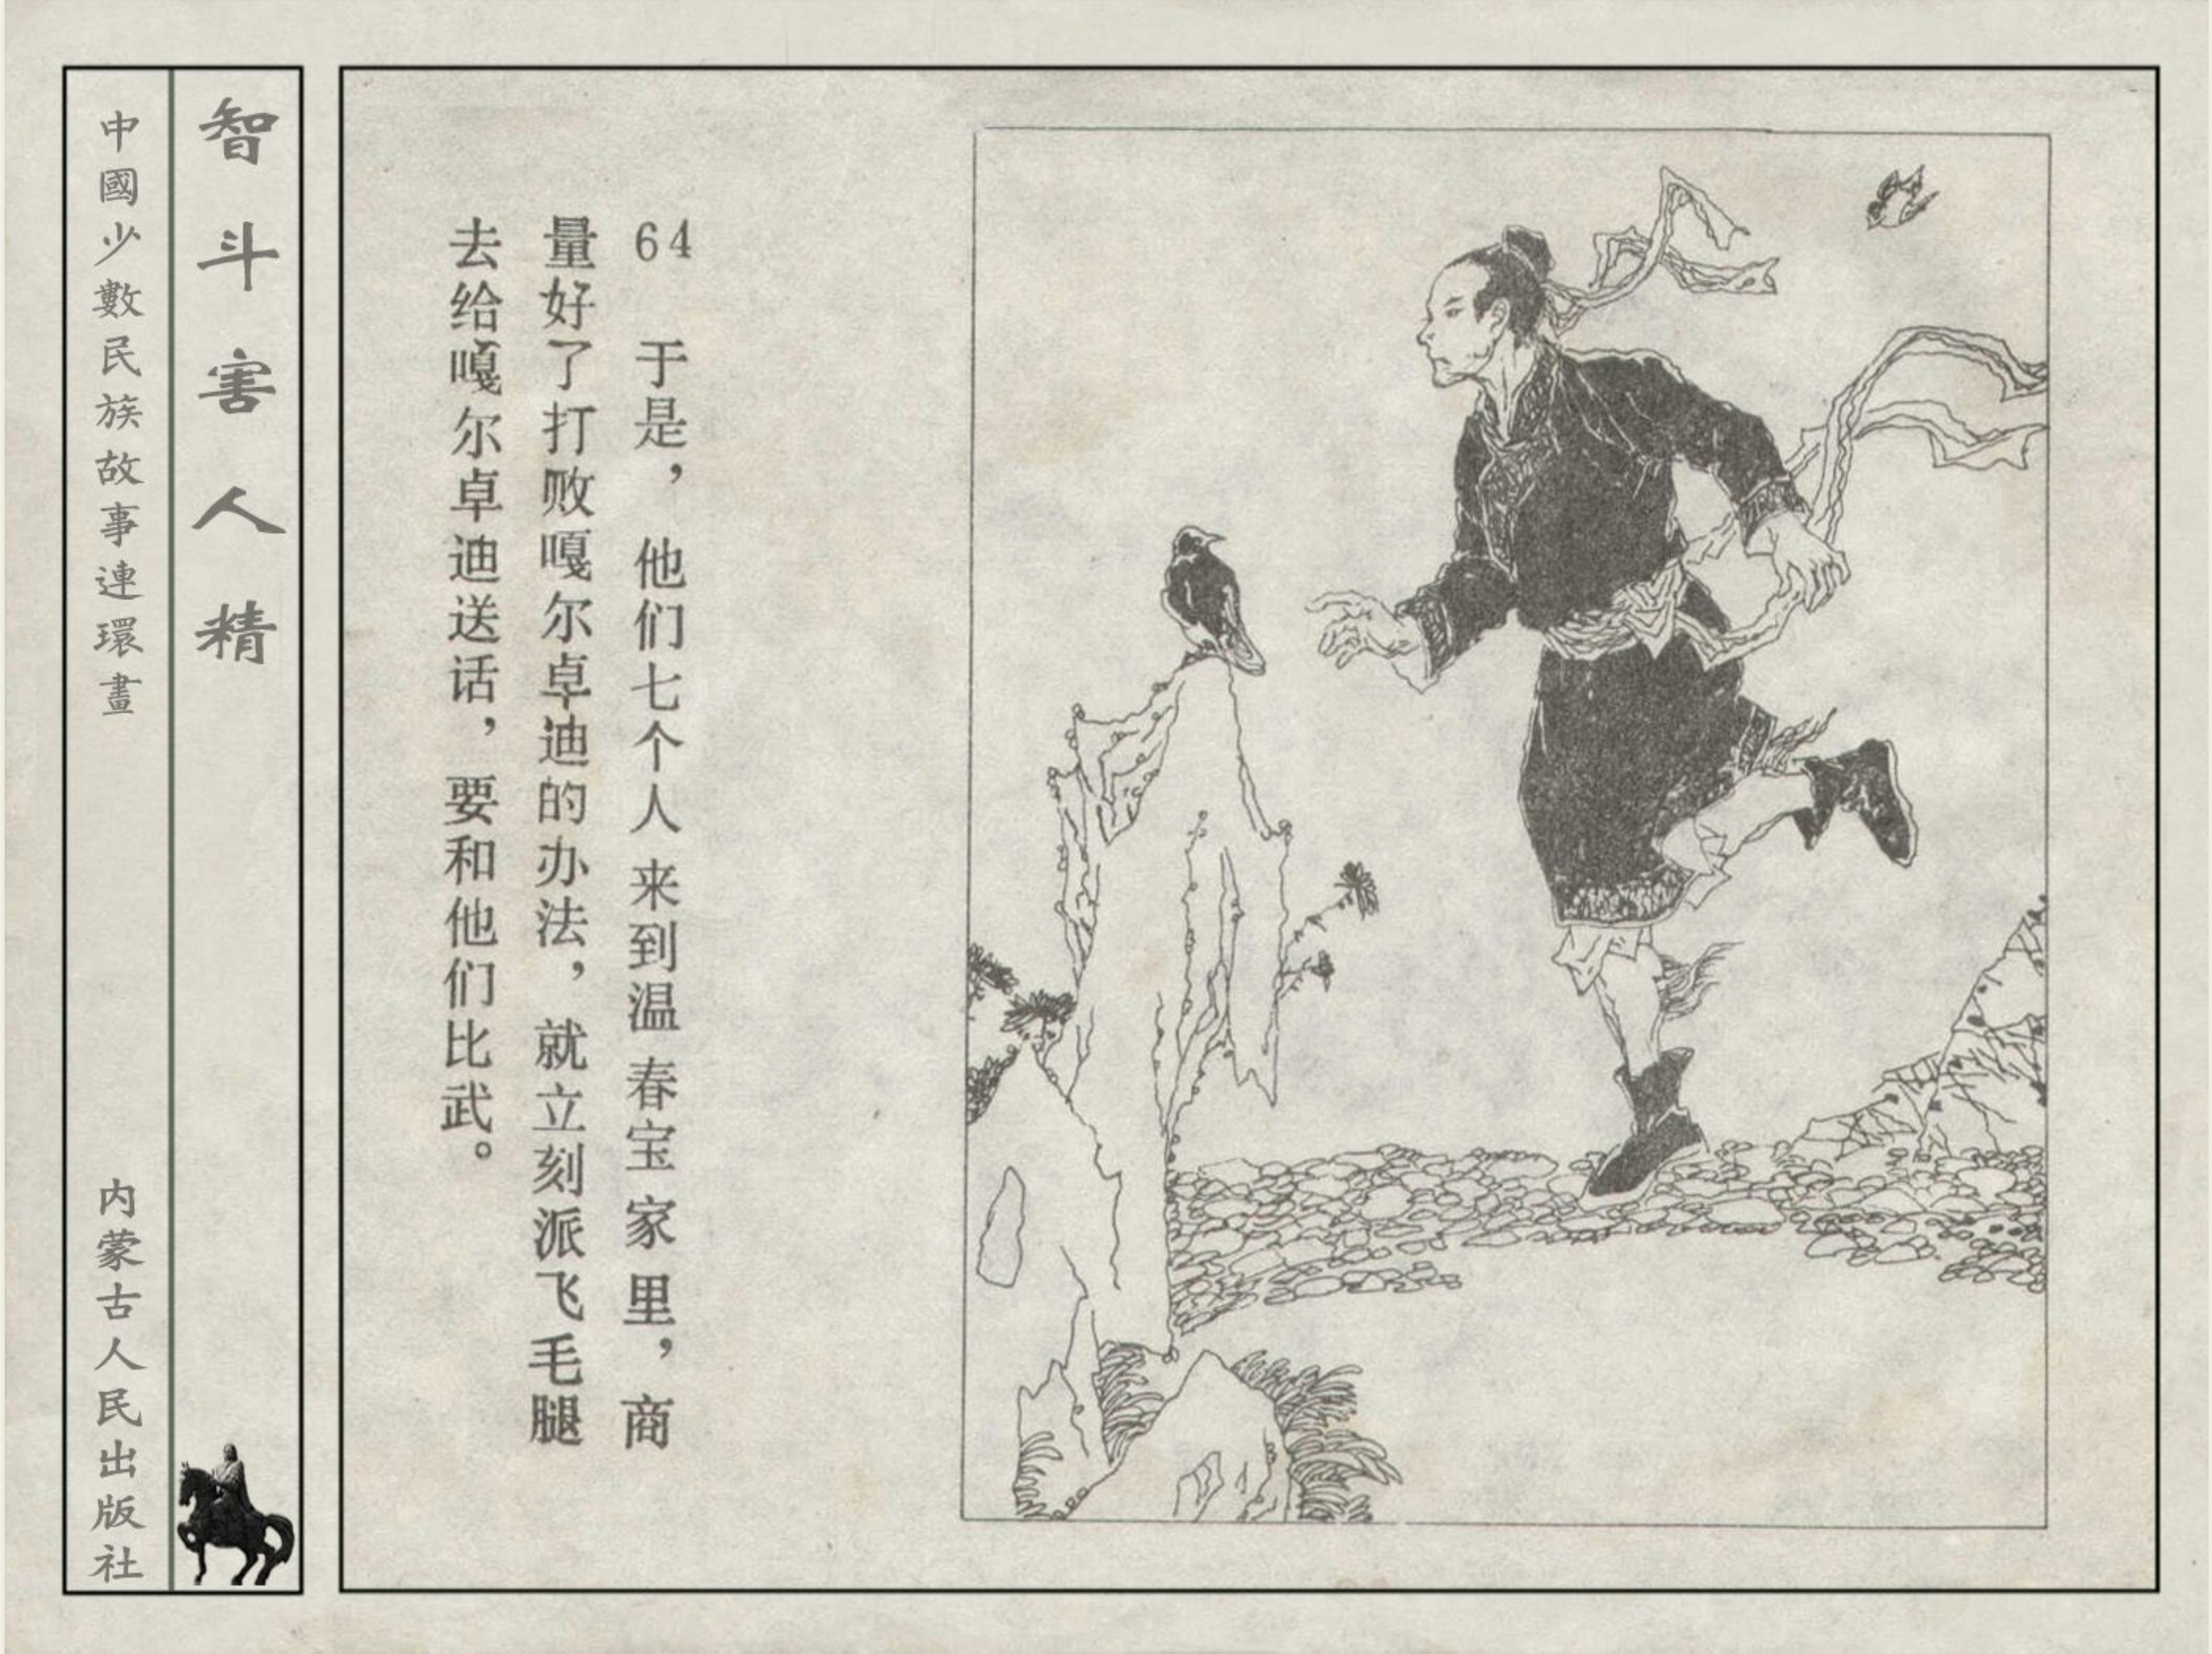 智斗害人精
中國少數民族故事連環畫
内蒙古人民出版社
64 于是，他们七个人来到温春宝家里，商
量好了打败嘎尔卓迪的办法，就立刻派飞毛腿
去给嘎尔卓迪送话，要和他们比武。